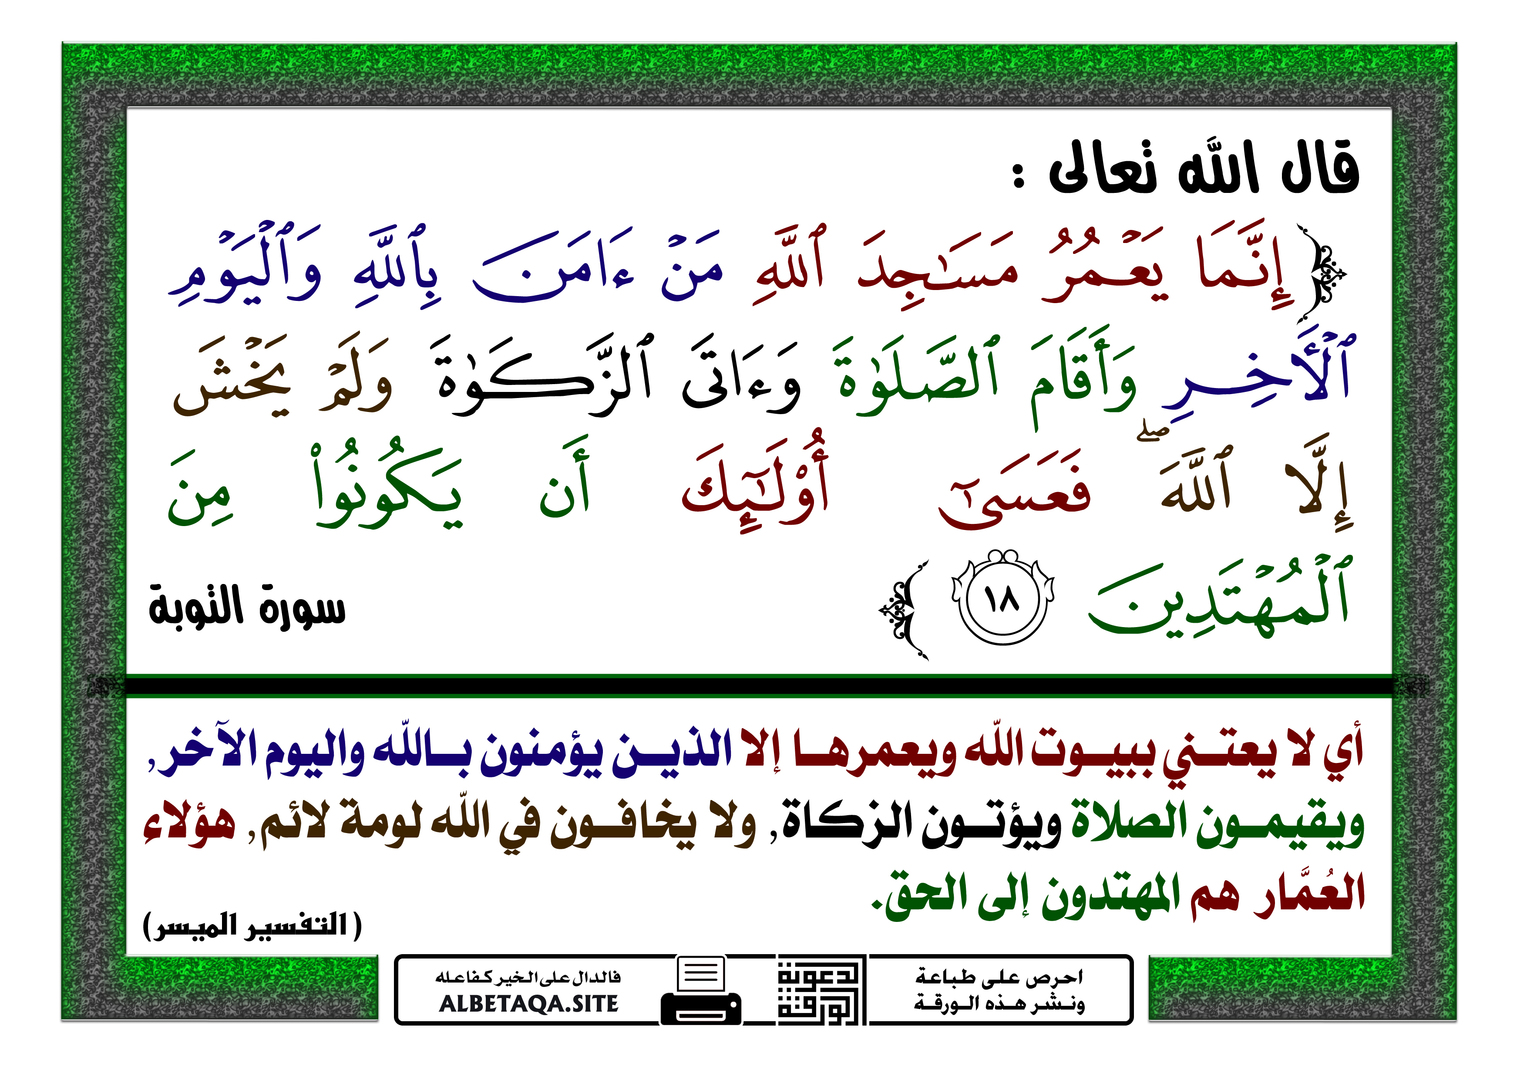 قال الله تعالى :
﴿ إِنَّمَا يَعۡمُرُ مَسَـٰجِدَ ٱللَّهِ مَنۡ ءَامَنَ بِٱللَّهِ وَٱلۡيَوۡمِ
ٱلۡأَخِرِ وَأَقَامَ ٱلصَّلَوٰةَ وَءَاتَى ٱلزَّكَوٰةَ وَلَمۡ يَخۡشَ
إِلَّا ٱللَّهَۖ فَعَسَىٰٓ أُوْلَـٰٓئِكَ أَن يَكُونُواْ مِنَ
ٱلۡمُهۡتَدِينَ ١٨ ﴾
سورة التوبة
أي لا يعتني ببيوت الله ويعمرها إلا الذين يؤمنون بالله واليوم الآخر,
ويقيمون الصلاة ويؤتون الزكاة, ولا يخافون في الله لومة لائم, هؤلاء
العُمَّار هم المهتدون إلى الحق.
( التفسير الميسر)
احرص على طباعة
ونشر هذه الورقة
الورقة
الدعوية
فالدال على الخير كفاعله
ALBETAQA.SITE